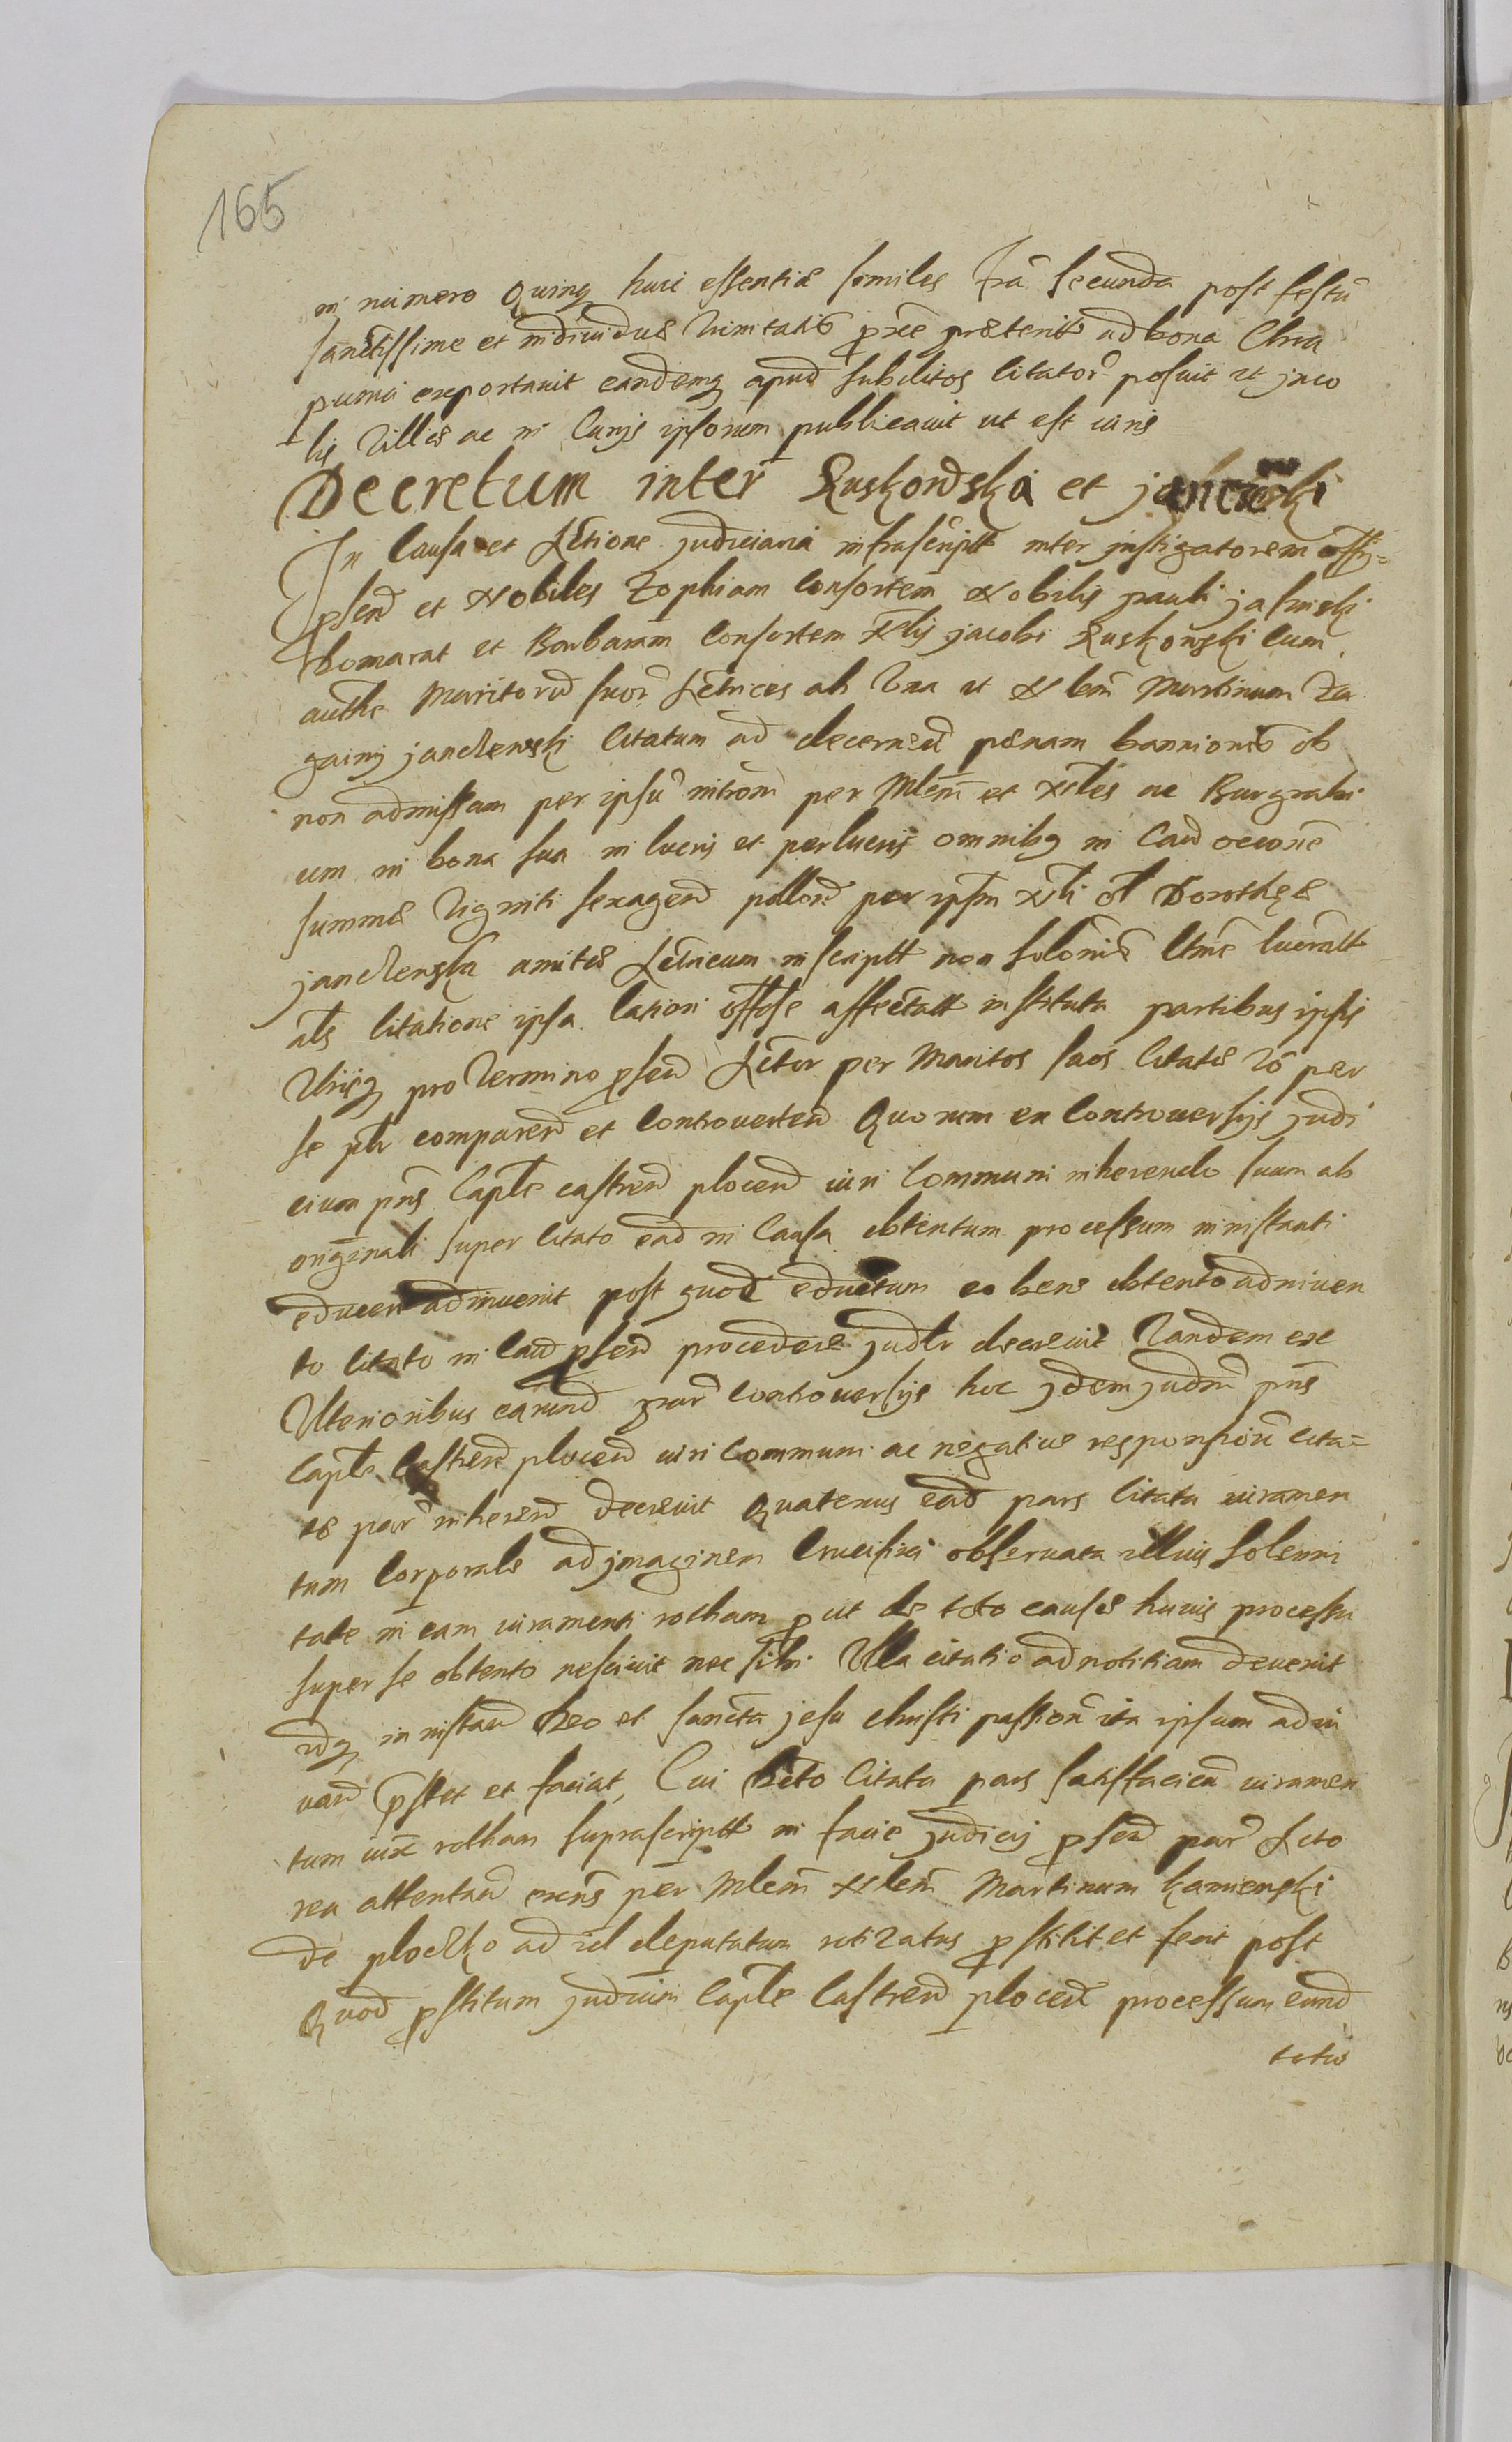 165
in numero Quinq huic essentiæ similes Fra secunda post festu
sanctissime et individuæ Trinitatis pxe præterit ad bona Chra
puma exportavit eandemq apud subditos citator posuit et inco
lis villæ ac in curijs ipsorum publicavit ut est iuris
Decretum inter Ruskowska et janczewski
In Causa et Actione judiciaria infrascriptt inter instigatorem offij
psend et Nobiles Zophiam Consortem Nobilis pauli jasinski
Domarat et Barbaram Consortem Nlis jacobi Ruskowski cum
authe Maritoru suor Actrices ab Una et Nlem Martinum Za
janczewski Citatum ad decernend pænam bannionis ob
non admissam per ipsu introm per Mlem et Nles ac Burgrabi
um in bona sua in lucris et perlucris omnibq in Caud occone
summæ Viginti sexagend pollond per ipsm Nli ol Dorothęæ
janczewska amitæ Actricum inscriptt non solonis ltme lucratt
als citatione ipsa lationi offose affectatt instituta partibus ipsis
Utrisq pro termino psend Actor per Maritos suos Citatæ vo per
se plr comparend et Controvertend Quorum ex Controversijs judi
cium pns Capłe castrend plocend iuri Communi inherendo suum ab
originali super citato ead in Causa obtentum processum in instanti
educere adinvenit post quod eductum eo bene obtento adinven
to citato in caud psend procedere judłr decrevit Tandem ex
Ulterioribus earund par Controversijs hoc jdem judm pns
Capłe Castrend plocend iuri Communi ac negativæ responsioni cita
tæ par inherend decrevit Quatenus ead pars Citata iuramen
tum Corporale ad jmaginem Crucifixi observata illius solenni
tate in eam iuramenti rotham p ut de toto causæ huius processu
super se obtento nescivit nec sibi Ulla citatio ad notitiam devenit
idq in instand Deo et sancta jesu christi passione ita ipsum adiu
vand pstet et faciat, Cui Dcto Citata pars satisfaciend iuramen
tum iux rotham suprascriptt in facie judicij psend par Acto
rea attentand excns per Mlem Nlem Martinum Kamienski
de ploczko ad id deputatum rotizatus pstitit et fecit post
Quod pstitum judicium Capłe Castrend plocend processum eund
totu